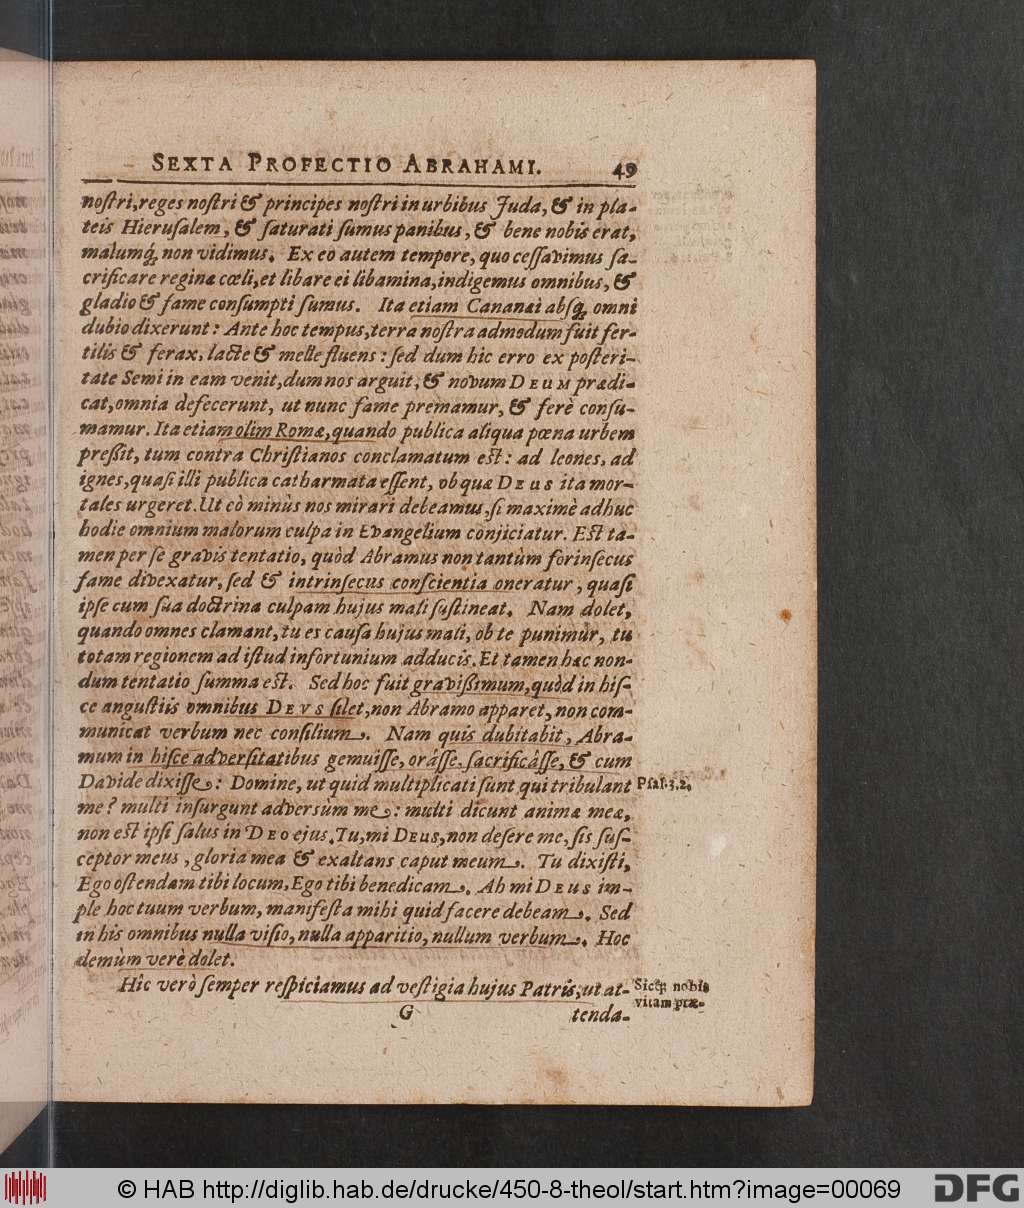 SEXTA PROFECTIO ABRAHAMI. 49
noſtri, reges noſtri & principes noſtri in urbibus Juda, & in pla-
teis Hieruſalem, & ſaturati ſumus panibus, & bene nobis erat,
malumq́; non vidimus. Ex eo autem tempore, quo ceſſavimus ſa-
crificare reginæ cœli, et libare ei libamina, indigemus omnibus, &
gladio & fame conſumpti ſumus. Ita etiam Cananæi abſq́; omni
dubio dixerunt: Ante hoc tempus, terra noſtra admodum fuit fer-
tilis & ferax, lacte & melle fluens: ſed dum hic erro ex poſteri-
tate Semi in eam venit, dum nos arguit, & novum DEUM prædi-
cat, omnia defecerunt, ut nunc fame premamur, & ferè conſu-
mamur. Ita etiam olim Romæ, quando publica aliqua pœna urbem
preſſit, tum contra Chriſtianos conclamatum eſt: ad leones, ad
ignes, quaſi illi publica catharmata eſſent, ob quæ DEUS ita mor-
tales urgeret. Ut eò minùs nos mirari debeamus, ſi maximè adhuc
hodie omnium malorum culpa in Evangelium conjiciatur. Eſt ta-
men per ſe gravis tentatio, quòd Abramus non tantùm forinſecus
fame divexatur, ſed & intrinſecus conſcientia oneratur, quaſi
ipſe cum ſua doctrina culpam hujus mali ſuſtineat. Nam dolet,
quando omnes clamant, tu es cauſa hujus mali, ob te punimur, tu
totam regionem ad iſtud infortunium adducis. Et tamen hæc non-
dum tentatio ſumma eſt. Sed hoc fuit graviſſimum, quòd in hiſ-
ce anguſtiis omnibus DEVS ſilet, non Abramo apparet, non com-
municat verbum nec conſilium. Nam quis dubitabit, Abra-
mum in hiſce adverſitatibus gemuiſſe, orâſſe, ſacrificâſſe, & cum
Davide dixiſſe: Domine, ut quid multiplicati ſunt qui tribulant Pſal. 3. 2.
me? multi inſurgunt adversùm me: multi dicunt animæ meæ,
non eſt ipſi ſalus in DEO ejus. Tu, mi DEUS, non deſere me, ſis ſuſ-
ceptor meus, gloria mea & exaltans caput meum. Tu dixiſti,
Ego oſtendam tibi locum, Ego tibi benedicam. Ah mi DEUS im-
ple hoc tuum verbum, manifeſta mihi quid facere debeam. Sed
in his omnibus nulla viſio, nulla apparitio, nullum verbum. Hoc
demùm verè dolet.
Hîc verò ſemper reſpiciamus ad veſtigia hujus Patris, ut at- Sicq́; nobis
vitam præ-
G tenda-
© HAB http://diglib.hab.de/drucke/450-8-theol/start.htm?image=00069 DFG